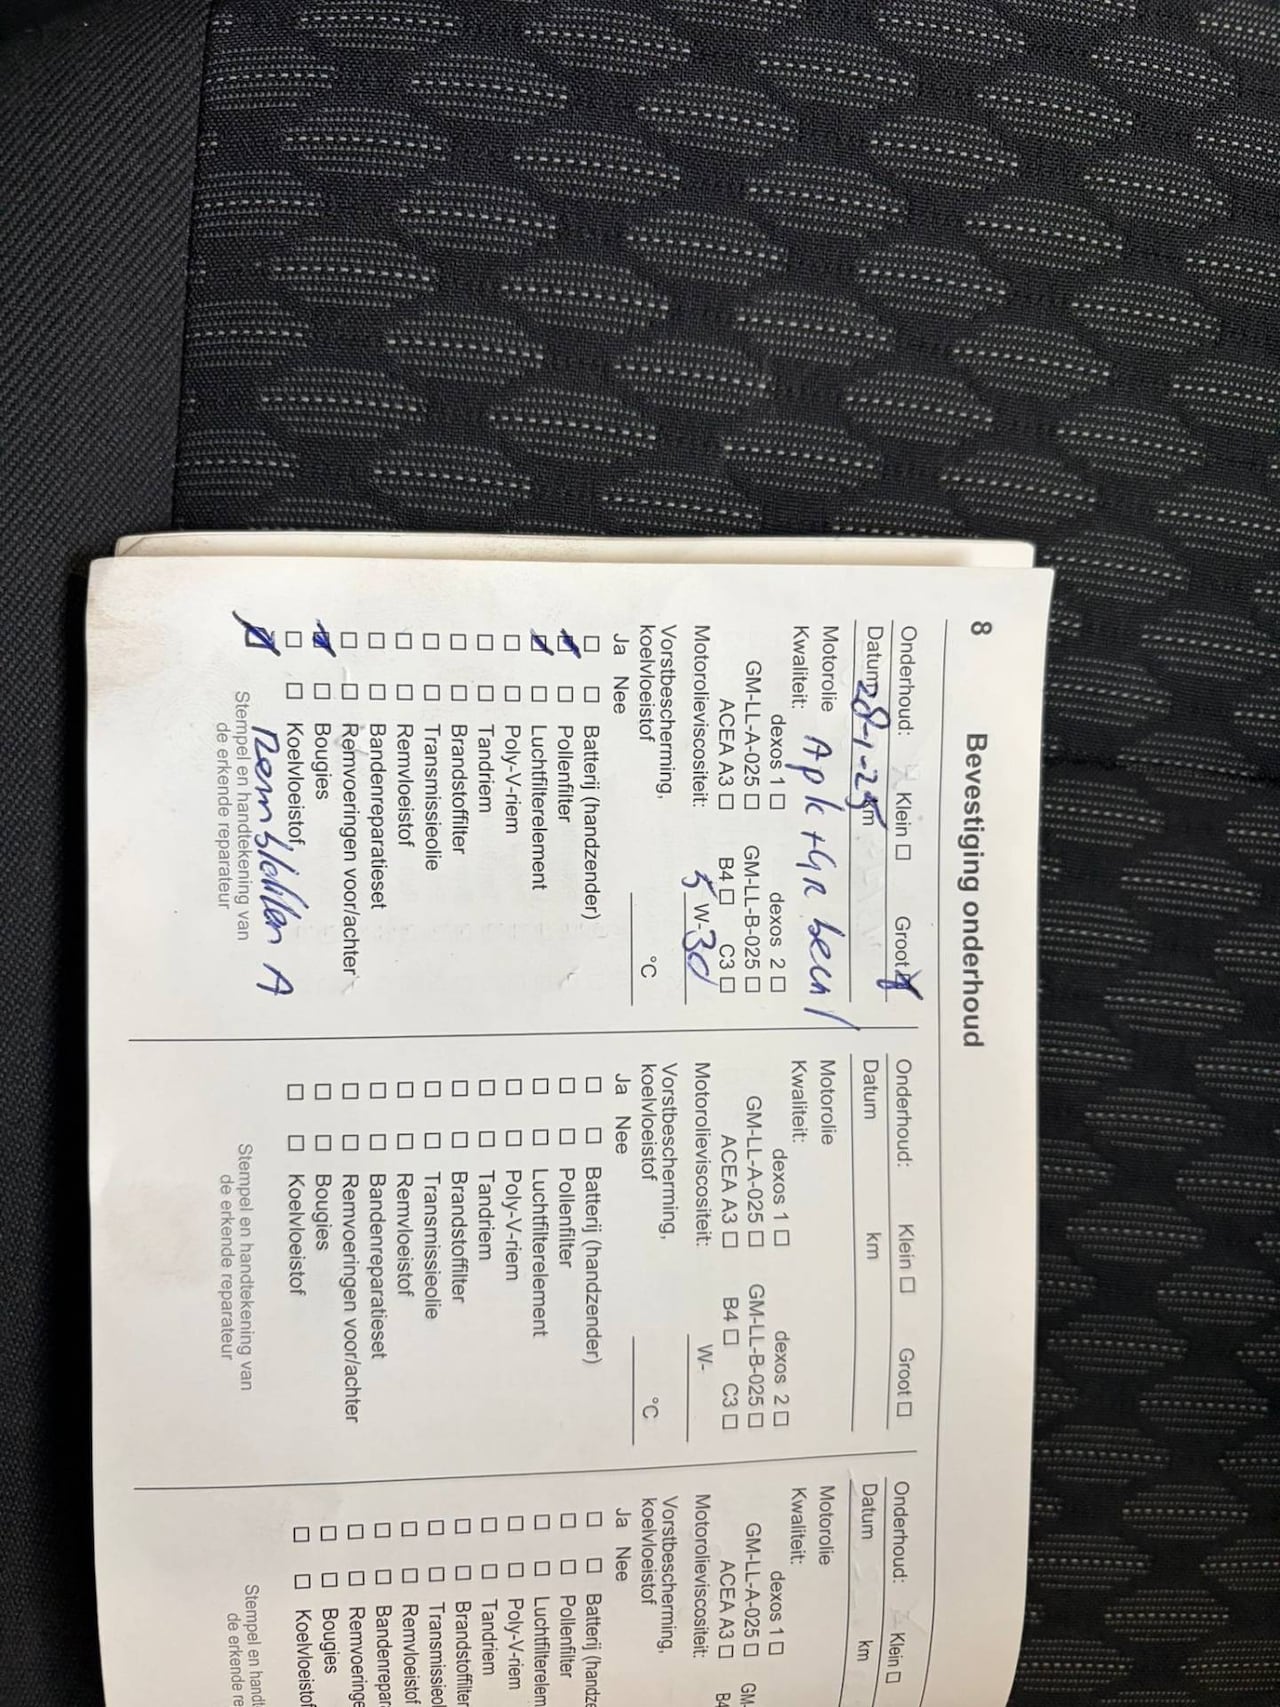 8 Bevestiging onderhoud
Onderhoud: Klein ☐ Groot ☒
Datum 28-1-25 km
Motorolie
Kwaliteit: Apk + GR beurt
dexos 1 ☐ dexos 2 ☐
GM-LL-A-025 ☐ GM-LL-B-025 ☐
ACEA A3 ☐ B4 ☐ C3 ☐
Motorolieviscositeit: 5 W-30
Vorstbescherming,
koelvloeistof °C
Ja Nee
☐ ☐ Batterij (handzender)
☒ ☐ Pollenfilter
☒ ☐ Luchtfilterelement
☐ ☐ Poly-V-riem
☐ ☐ Tandriem
☐ ☐ Brandstoffilter
☐ ☐ Transmissieolie
☐ ☐ Remvloeistof
☐ ☐ Bandenreparatieset
☐ ☐ Remvoeringen voor/achter
☒ ☐ Bougies
☐ ☐ Koelvloeistof
☒ A
Stempel en handtekening van
de erkende reparateur
Onderhoud: Klein ☐ Groot ☐
Datum km
Motorolie
Kwaliteit:
dexos 1 ☐ dexos 2 ☐
GM-LL-A-025 ☐ GM-LL-B-025 ☐
ACEA A3 ☐ B4 ☐ C3 ☐
Motorolieviscositeit: W-
Vorstbescherming,
koelvloeistof °C
Ja Nee
☐ ☐ Batterij (handzender)
☐ ☐ Pollenfilter
☐ ☐ Luchtfilterelement
☐ ☐ Poly-V-riem
☐ ☐ Tandriem
☐ ☐ Brandstoffilter
☐ ☐ Transmissieolie
☐ ☐ Remvloeistof
☐ ☐ Bandenreparatieset
☐ ☐ Remvoeringen voor/achter
☐ ☐ Bougies
☐ ☐ Koelvloeistof
Stempel en handtekening van
de erkende reparateur
Onderhoud: Klein ☐
Datum km
Motorolie
Kwaliteit:
dexos 1 ☐
GM-LL-A-025 ☐ GM-
ACEA A3 ☐ B4
Motorolieviscositeit:
Vorstbescherming,
koelvloeistof
Ja Nee
☐ ☐ Batterij (handze
☐ ☐ Pollenfilter
☐ ☐ Luchtfilterelem
☐ ☐ Poly-V-riem
☐ ☐ Tandriem
☐ ☐ Brandstoffilter
☐ ☐ Transmissieol
☐ ☐ Remvloeistof
☐ ☐ Bandenrepar
☐ ☐ Remvoeringe
☐ ☐ Bougies
☐ ☐ Koelvloeistof
Stempel en handt
de erkende re